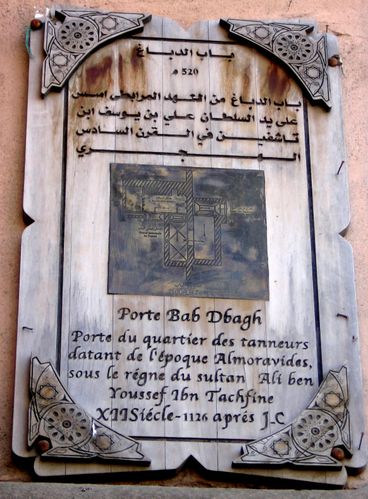 باب الدباغ
520 م
باب الدباغ من العهد المرابطي اسس
على يد السلطان علي بن يوسف ابن
تاشفين في القرن السادس
الهجري
Porte Bab Dbagh
Porte du quartier des tanneurs
datant de l'époque Almoravides,
sous le régne du sultan Ali ben
Youssef Ibn Tachfine
XIISiécle-1126 aprés J.C